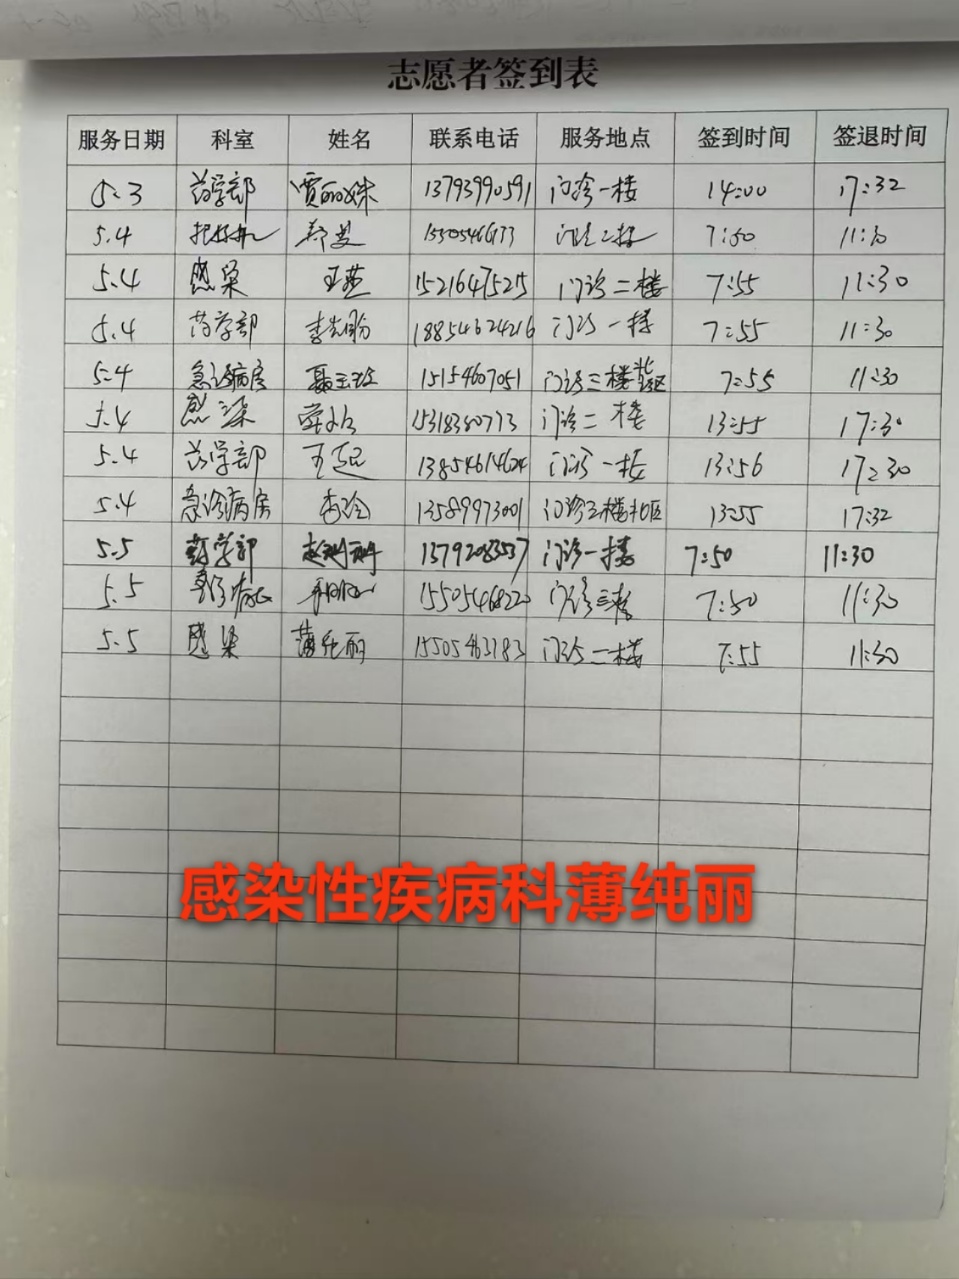 志愿者签到表
服务日期 科室 姓名 联系电话 服务地点 签到时间 签退时间
5.3 药学部 贾丽姝 13793990591 门诊一楼 14:00 17:32
5.4 7:50 11:30
5.4 感染 王燕 15216475215 门诊二楼 7:55 11:30
5.4 药学部 18854624216 门诊一楼 7:55 11:30
5.4 急诊病房 15154607051 门诊三楼 7:55 11:30
5.4 感染 15318380773 门诊二楼 13:55 17:30
5.4 药学部 13854614624 门诊一楼 13:56 17:30
5.4 急诊病房 13589973001 门诊三楼北区 13:55 17:32
5.5 药学部 门诊一楼 7:50 11:30
5.5 急诊病房 15505468220 门诊三楼 7:50 11:30
5.5 感染 薄纯丽 15505463183 门诊二楼 7:55 11:30
感染性疾病科薄纯丽